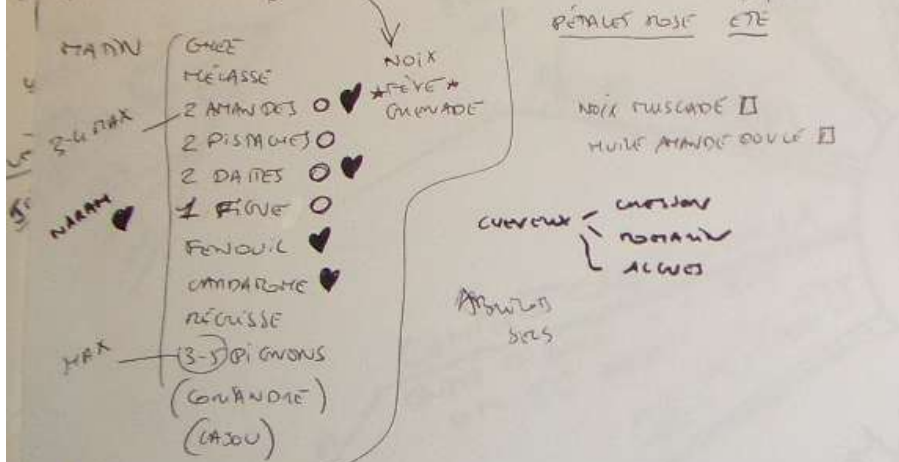 MATIN
GHEE
MÉLASSE
3-4 MAX
2 AMANDES
2 PISTACHES
2 DATTES
1 FIGUE
NARAM
FENOUIL
CARDAMOME
RÉGLISSE
MAX
3-5 PIGNONS
(CORIANDRE)
(CAJOU)
NOIX
*FÈVE*
GRENADE
PÉTALES ROSE ÉTÉ
NOIX MUSCADE
HUILE AMANDE DOUCE
CHEVEUX
CRESSON
ROMARIN
ALGUES
ABRICOS
SECS